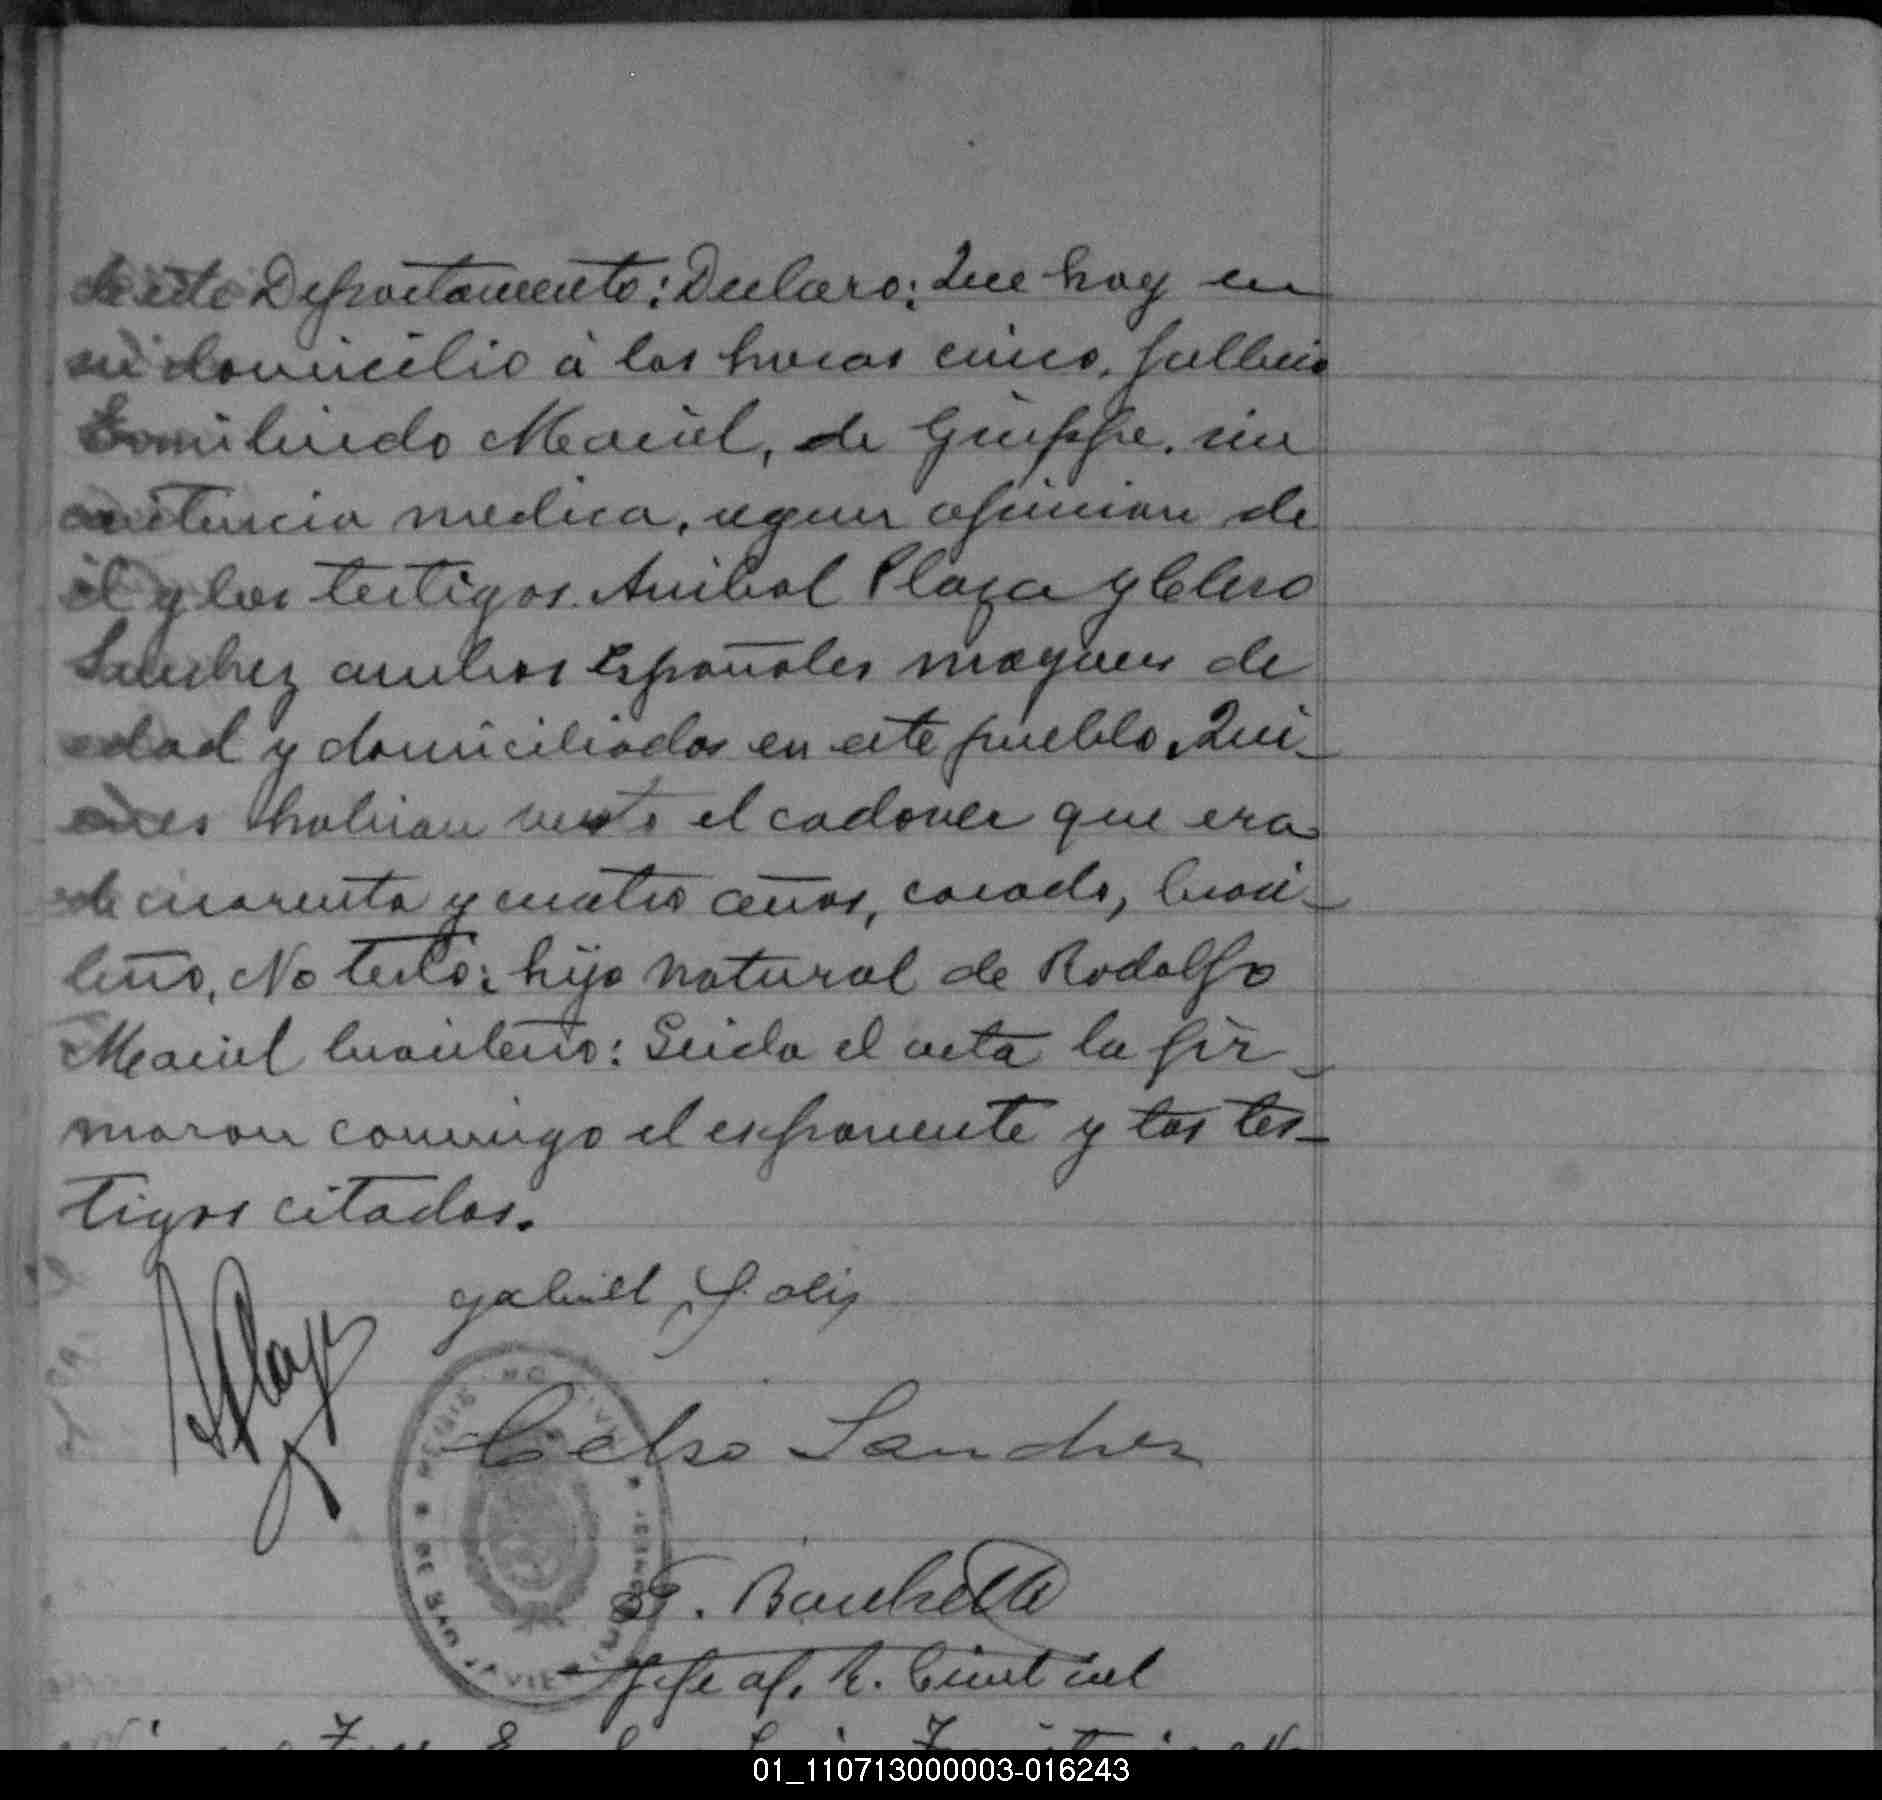 de este Departamento: Declaro: Que hoy en
su domicilio á las horas cinco, fallecio
Ermilindo Maciel, de Grippe, sin
asistencia medica, segun opinion de
él y los testigos Anibal Plaza y Celso
Sanchez ambos Españoles mayores de
edad y domiciliados en este pueblo, Qui-
enes habian visto el cadaver que era
de cuarenta y cuatro años, casado, brasi-
leño, No testó: hijo natural de Rodolfo
Maciel brasileño: Leida el acta la fir-
maron conmigo el exponente y los tes-
tigos citados.
gabriel Solis
APlaza
REGISTRO CIVIL
Celso Sanchez
DE SAN JAVIER
Jefe of. R. Civil
01_110713000003-016243